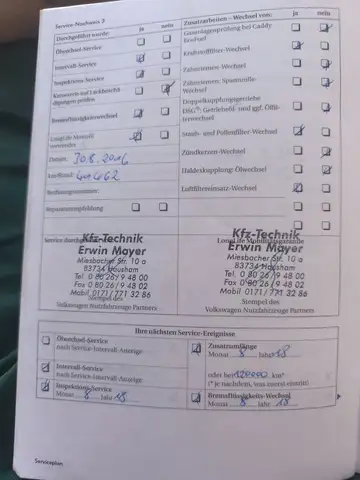 Service-Nachweis 3
Durchgeführt wurde: ja nein
Ölwechsel-Service
Intervall-Service
Inspektions-Service
Karosserie auf Lackbeschädigungen prüfen
Bremsflüssigkeitswechsel
LongLife Motoröl verwendet
Datum: 30.8.2016
km-Stand:
Rechnungsnummer:
Reparaturempfehlung
Zusatzarbeiten – Wechsel von: ja nein
Gasanlagenprüfung bei Caddy
Kraftstofffilter-Wechsel
Zahnriemen-Wechsel
Zahnriemen: Spannrolle-Wechsel
Doppelkupplungsgetriebe
DSG®: Getriebeöl- und ggf. Ölfilterwechsel
Staub- und Pollenfilter-Wechsel
Zündkerzen-Wechsel
Haldexkupplung: Ölwechsel
Luftfiltereinsatz-Wechsel
Service durchgeführt
Kfz-Technik
Erwin Mayer
Miesbacher Str. 10 a
83734 Hausham
Tel. 0 80 26/9 48 00
Fax 0 80 26/9 48 02
Mobil 0171/771 32 86
Stempel des
Volkswagen Nutzfahrzeuge Partners
LongLife Mobilitätsgarantie
Kfz-Technik
Erwin Mayer
Miesbacher Str. 10 a
83734 Hausham
Tel. 0 80 26/9 48 00
Fax 0 80 26/9 48 02
Mobil 0171/771 32 86
Stempel des
Volkswagen Nutzfahrzeuge Partners
Ihre nächsten Service-Ereignisse
Ölwechsel-Service
nach Service-Intervall-Anzeige
Intervall-Service
nach Service-Intervall-Anzeige
Inspektion-Service
Monat 8 Jahr 18
Zusatzumfänge
Monat 8 Jahr 18
oder bei 120000 km*
(* je nachdem, was zuerst eintritt)
Bremsflüssigkeits-Wechsel
Monat 8 Jahr 18
Serviceplan